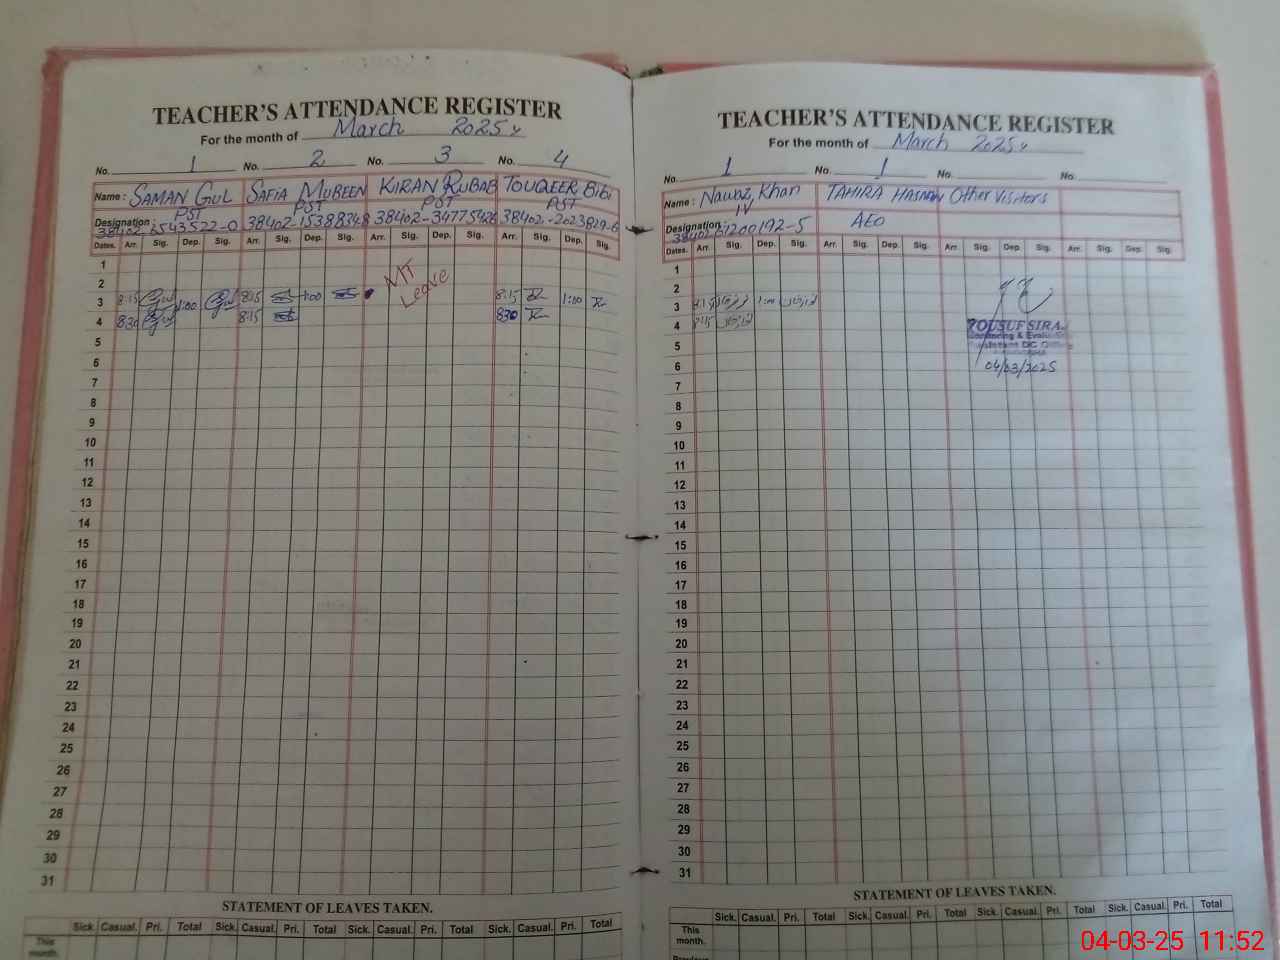 TEACHER'S ATTENDANCE REGISTER
For the month of March 2025
No. 1 No. 2 No. 3 No. 4
Name : SAMAN GUL SAFIA MUBEEN KIRAN RUBAB TOUQEER Bibi
Designation : PST PST PST PST
38402-1538834-8 38402-3477542-6 38402-2023829-6
Dates. Arr. Sig. Dep. Sig. Arr. Sig. Dep. Sig. Arr. Sig. Dep. Sig. Arr. Sig. Dep. Sig.
1
2
3 8:15 Gul 1:00 Gul 8:15 1:00 MT Leave 8:15 1:00
4 8:30 Gul 8:15 8:30
5
6
7
8
9
10
11
12
13
14
15
16
17
18
19
20
21
22
23
24
25
26
27
28
29
30
31
STATEMENT OF LEAVES TAKEN.
Sick. Casual. Pri. Total Sick. Casual. Pri. Total Sick. Casual. Pri. Total
This month.
TEACHER'S ATTENDANCE REGISTER
For the month of March 2025
No. 1 No. 1 No. No.
Name : Nawaz Khan TAHIRA Hasnain Other Visitors
Designation : IV AEO
Dates. Arr. Sig. Dep. Sig. Arr. Sig. Dep. Sig. Arr. Sig. Dep. Sig. Arr. Sig. Dep. Sig.
1
2
3 8:15 1:00
4 8:15
YOUSUF SIRAJ
Monitoring & Evaluation
Assistant DC Office
5
6
04/03/2025
7
8
9
10
11
12
13
14
15
16
17
18
19
20
21
22
23
24
25
26
27
28
29
30
31
STATEMENT OF LEAVES TAKEN.
Sick. Casual. Pri. Total Sick. Casual. Pri. Total Sick. Casual. Pri. Total Sick. Casual. Pri. Total
This month.
Previous
04-03-25 11:52